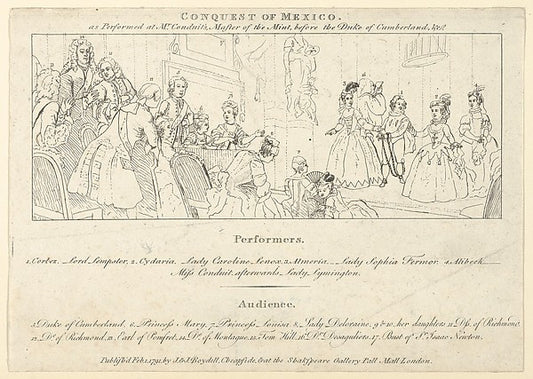 CONQUEST OF MEXICO.
as Performed at Mr. Conduit's, Master of the Mint, before the Duke of Cumberland, &c.
Performers.
1. Cortez. Lord Lempster, 2. Cydaria. Lady Caroline Lenox. 3. Almeria. Lady Sophia Fermor. 4. Alibech
Miss Conduit, afterwards Lady Lymington.
Audience.
5. Duke of Cumberland. 6. Princess Mary. 7. Princess Louisa. 8. Lady Deloraine. 9 & 10. her daughters. 11. Dss. of Richmond.
12. D. of Richmond. 13. Earl of Pomfret. 14. D. of Montague. 15. Tom Hill. 16. Dr. Desaguliers. 17. Bust of Sr. Isaac Newton.
Publish'd Feb. 1, 1791, by J. & J. Boydell, Cheapside, & at the Shakspeare Gallery Pall Mall London.